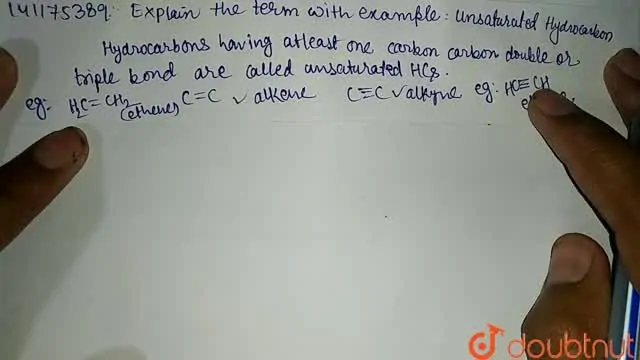 141175389: Explain the term with example: Unsaturated Hydrocarbon
Hydrocarbons having atleast one carbon carbon double or
triple bond are called unsaturated HCs.
eg: H₂C=CH₂ (ethene) C=C ✓ alkene C≡C ✓ alkyne eg: HC≡CH
doubtnut